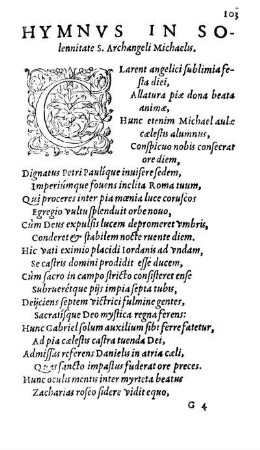 103
HYMNVS IN SO-
lennitate S. Archangeli Michaelis.
CLarent angelici sublimia fe-
sta diei,
Allatura piæ dona beata
animæ,
Hunc etenim Michael aulæ
cælestis alumnus,
Conspicuo nobis consecrat
ore diem,
Dignatus Petri Paulíque inuisere sedem,
Imperiúmque fouens inclita Roma tuum,
Qui proceres inter pia mœnia luce coruscos
Egregio vultu splenduit orbe nouo,
Cùm Deus expulsis lucem depromeret vmbris,
Conderet & stabilem nocte ruente diem.
Hic vati eximio placidi Iordanis ad vndam,
Se castris domini prodidit esse ducem,
Cùm sacro in campo stricto consisteret ense
Subruerétque pijs impia septa tubis,
Deijciens septem victrici fulmine gentes,
Sacratísque Deo mystica regna ferens:
Hunc Gabriel solum auxilium sibi ferre fatetur,
Ad pia cælestis castra tuenda Dei,
Admissas referens Danielis in atria cæli,
Quas sancto impastus fuderat ore preces.
Hunc oculis mentis inter myrteta beatus
Zacharias roseo sidere vidit equo,
G 4